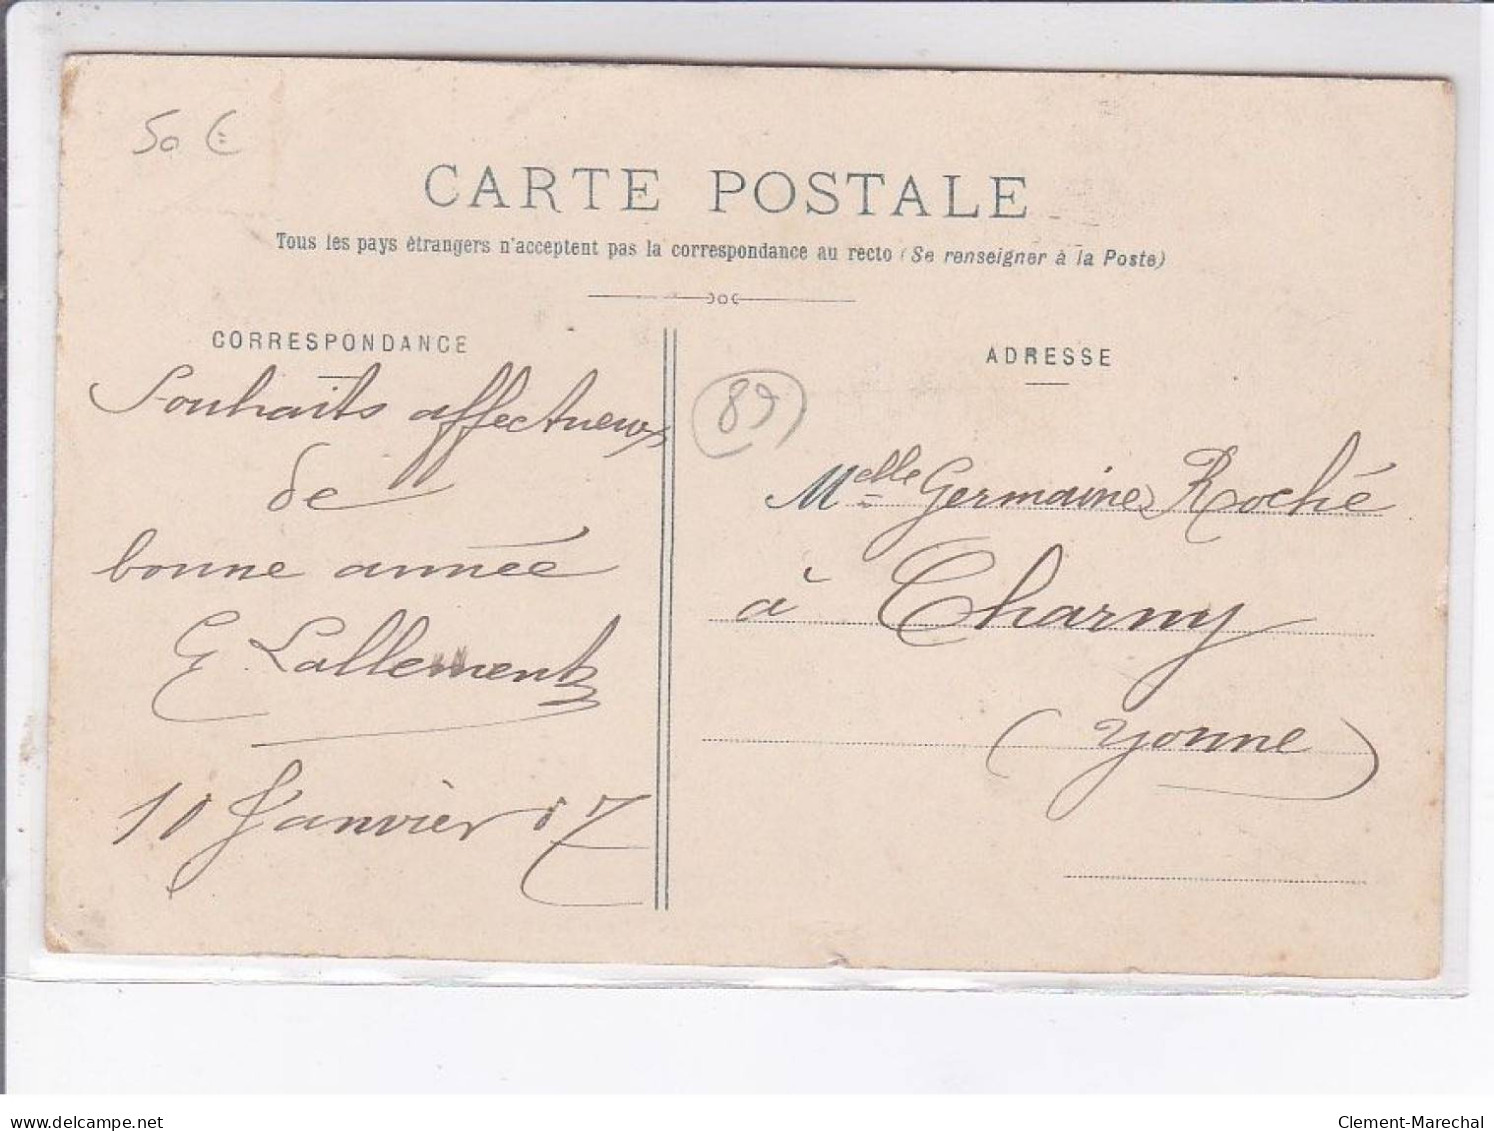 50 €
CARTE POSTALE
Tous les pays étrangers n'acceptent pas la correspondance au recto (Se renseigner à la Poste)
CORRESPONDANCE
Souhaits affectueux
de
bonne année
G. Lallement
10 Janvier 07
ADRESSE
89
Melle Germaine Roché
à Charny
(Yonne)
www.delcampe.net
Clement-Marechal